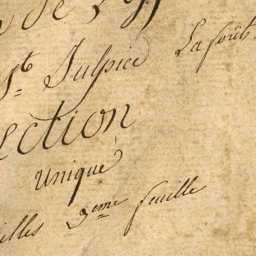 de L
St. Sulpice La forêt
ection
Unique
illes 2eme feuille